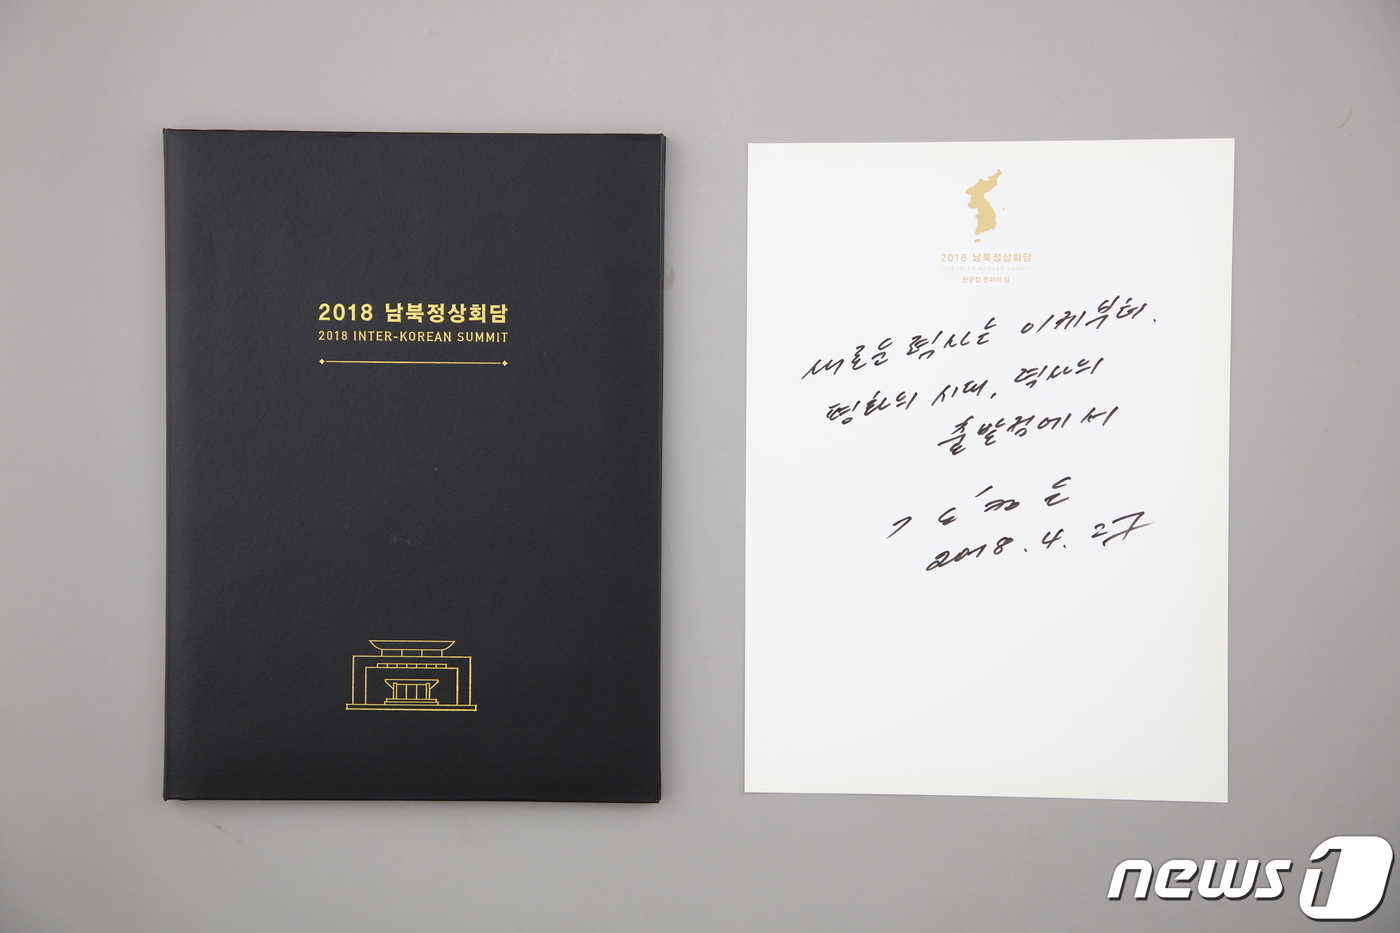 2018 남북정상회담
2018 INTER-KOREAN SUMMIT
2018 남북정상회담
2018 INTER-KOREAN SUMMIT
판문점 평화의 집
새로운 력사는 이제부터.
평화의 시대, 력사의
출발점에서
김정은
2018. 4. 27
news1